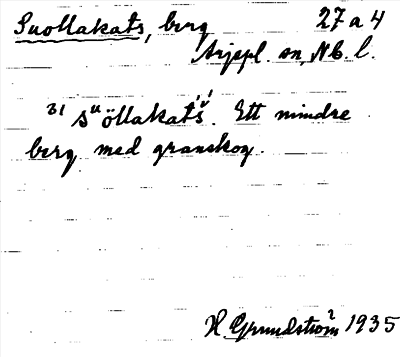 Suollakats, berg 27 a 4
Arjepl. sn, Nb. l.
31 sᵘöllakat́š́. Ett mindre
berg med granskog.
H Grundström 1935